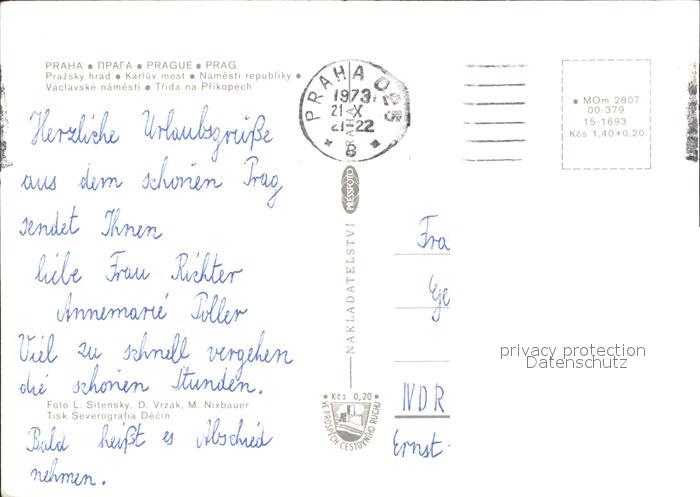 PRAHA • ПРАГА • PRAGUE • PRAG
Pražský hrad • Karlův most • Náměstí republiky •
Václavské náměstí • Třída na Příkopech
Herzliche Urlaubsgrüße
aus dem schönen Prag
sendet Ihnen
liebe Frau Richter
Annemarie Poller
Viel zu schnell vergehen
die schönen Stunden.
Foto L. Sitenský, D. Vrzák, M. Nixbauer
Tisk Severografia Děčín
Bald heißt es Abschied
nehmen.
PRAHA 025
1973
21 X
21-22
8
PRESSFOTO
NAKLADATELSTVÍ
• Kčs 0,20 •
VE PROSPĚCH CESTOVNÍHO RUCHU
• MOm 2807
00-379
15-1693
Kčs 1,40+0,20
Fra
Ge
DDR
Ernst
privacy protection
Datenschutz